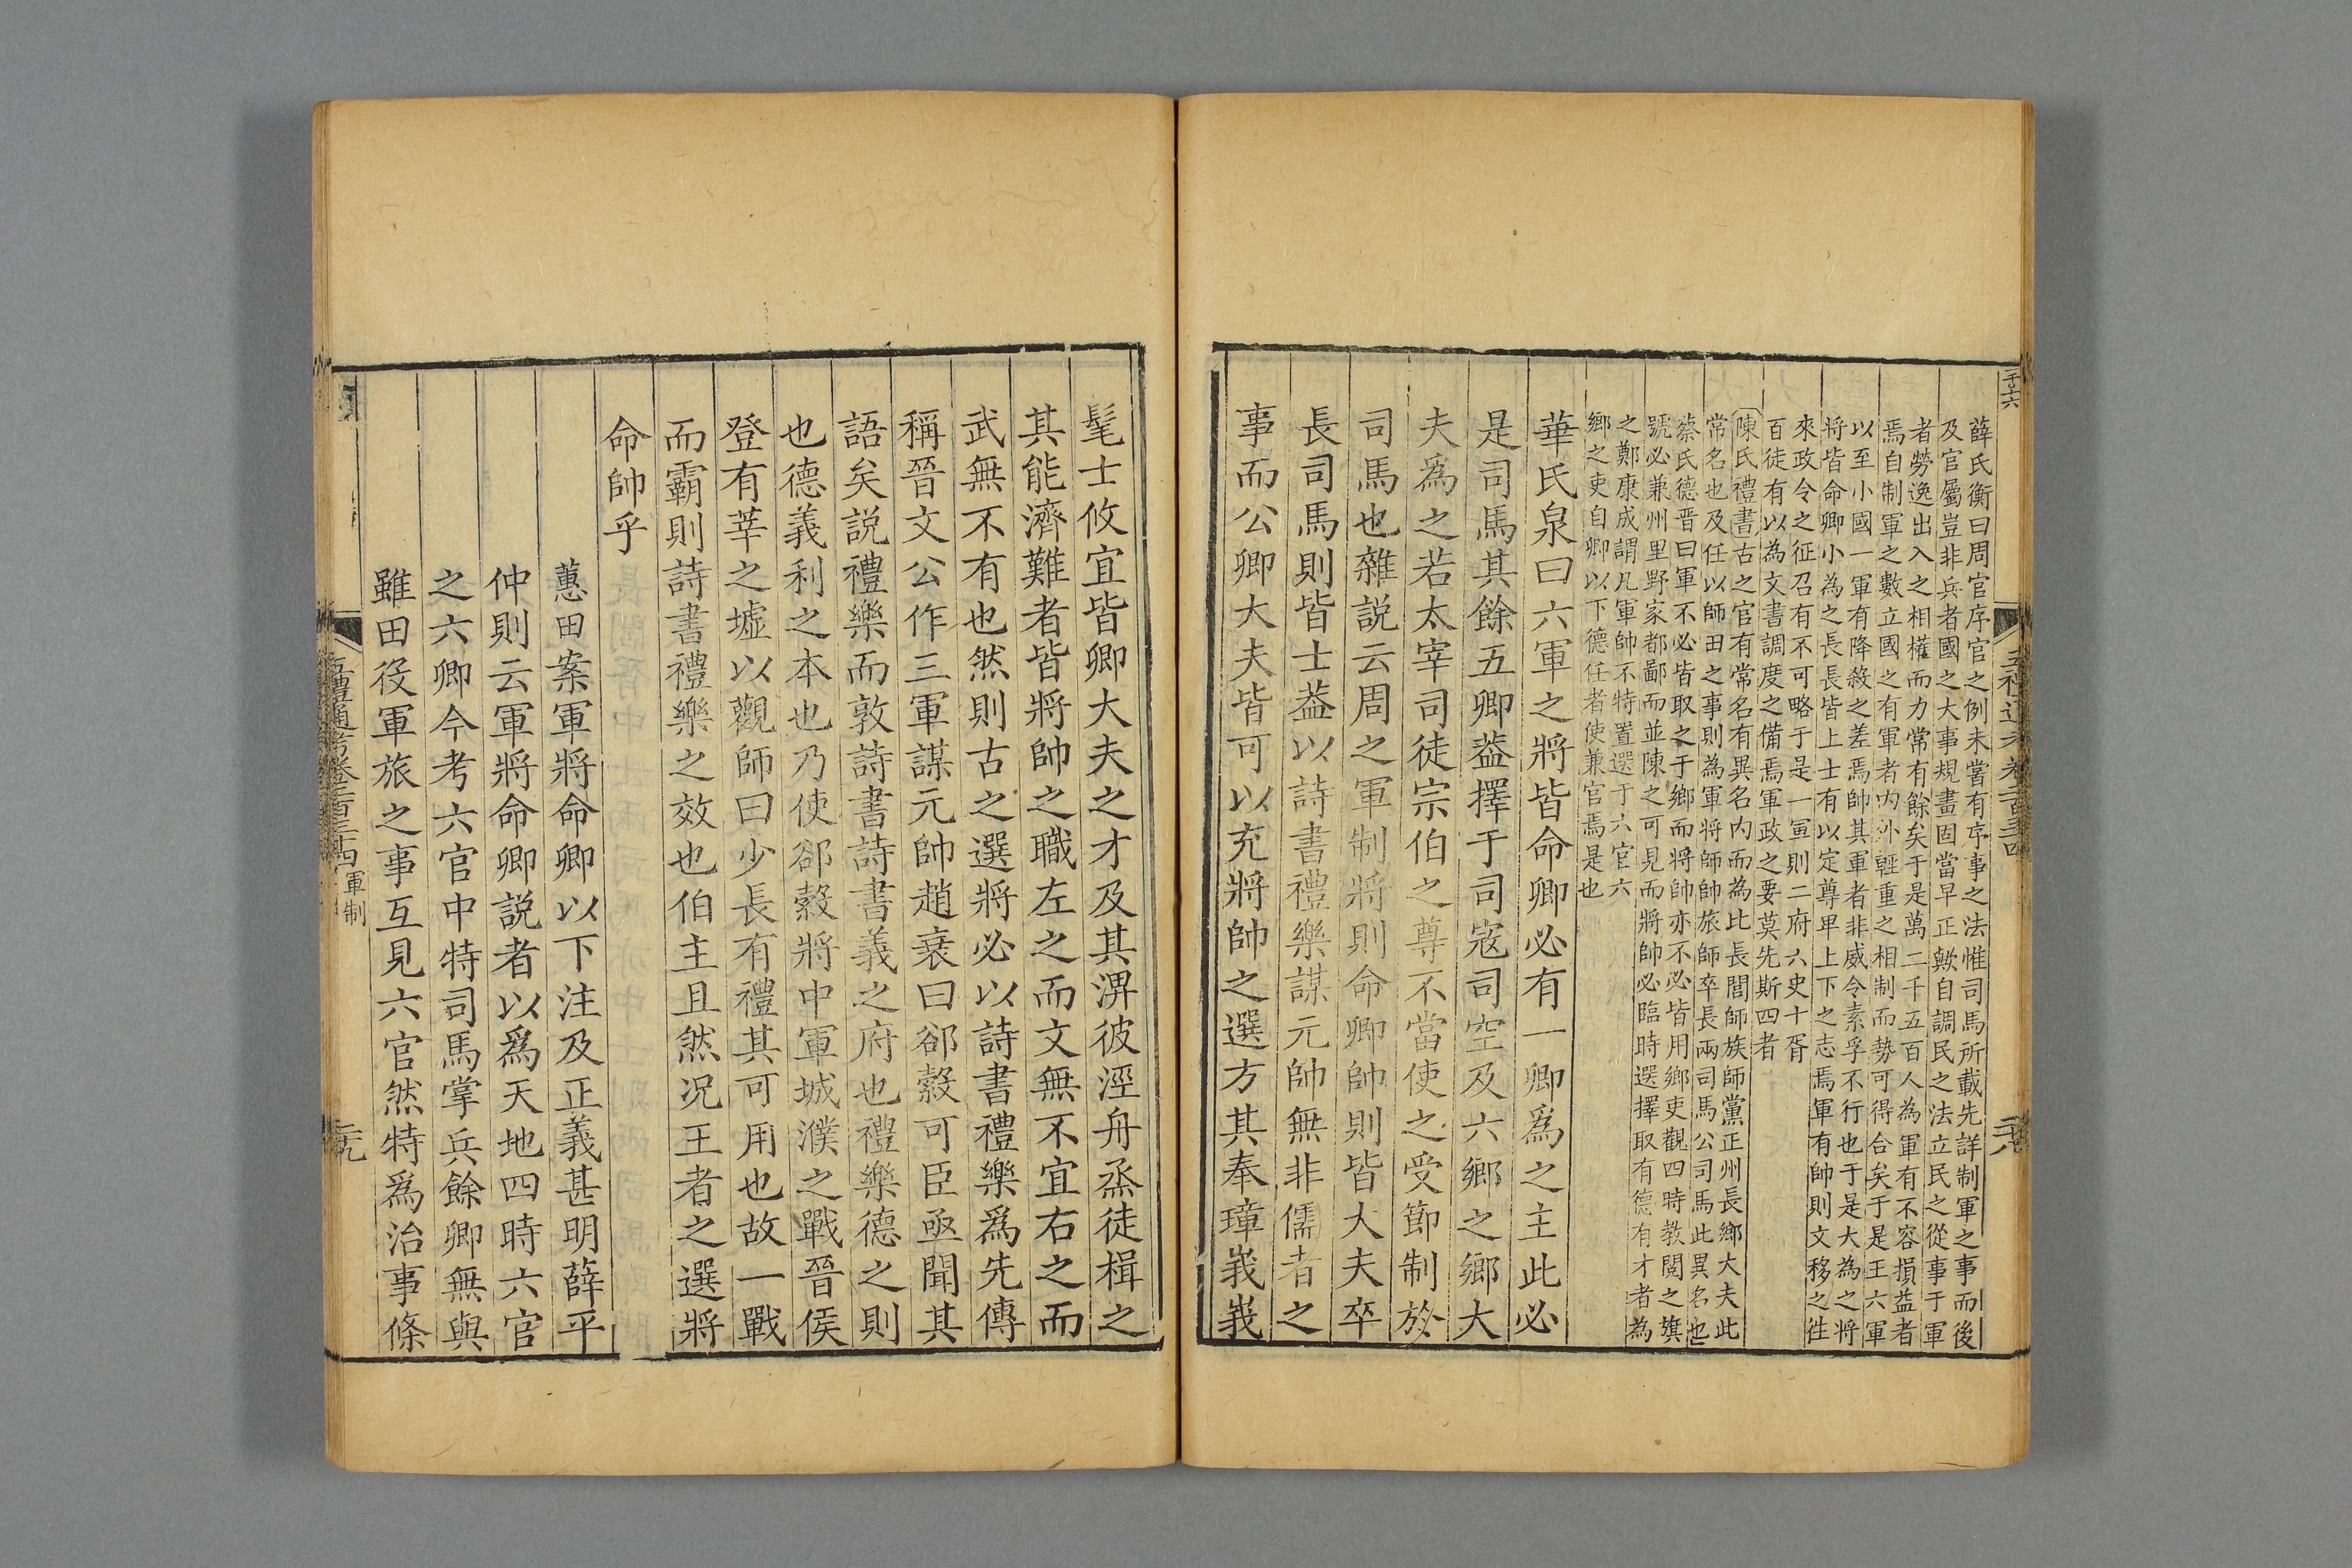 薛氏衡曰周官序官之例未嘗有序事之法惟司馬所載先詳制軍之事而後
及官屬豈非兵者國之大事規畫固當早正歟自調民之法立民之從事于軍
者勞逸出入之相權而力常有餘矣于是萬二千五百人為軍有不容損益者
焉自制軍之數立國之有軍者內外輕重之相制而勢可得合矣于是王六軍
以至小國一軍有降殺之差焉帥其軍者非威令素孚不行也于是大為之將
將皆命卿小為之長長皆上士有以定尊卑上下之志焉軍有帥則文移之往
來政令之征召有不可略于是一軍則二府六史十胥
百徒有以為文書調度之備焉軍政之要莫先斯四者
陳氏禮書古之官有常名有異名內而為比長閭師族師黨正州長鄉大夫此
常名也及任以師田之事則為軍將師帥旅師卒長兩司馬公司馬此異名也
蔡氏德晋曰軍不必皆取之于鄉而將帥亦不必皆用鄉吏觀四時教閱之旗
號必兼州里野家都鄙而並陳之可見而將帥必臨時選擇取有德有才者為
之鄭康成謂凡軍帥不特置選于六官六
鄉之吏自卿以下德任者使兼官焉是也
華氏泉曰六軍之將皆命卿必有一卿爲之主此必
是司馬其餘五卿葢擇于司寇司空及六鄉之鄉大
夫爲之若太宰司徒宗伯之尊不當使之受節制於
司馬也雜説云周之軍制將則命卿帥則皆大夫卒
長司馬則皆士葢以詩書禮樂謀元帥無非儒者之
事而公卿大夫皆可以充將帥之選方其奉璋峩峩
髦士攸宜皆卿大夫之才及其淠彼涇舟烝徒楫之
其能濟難者皆將帥之職左之而文無不宜右之而
武無不有也然則古之選將必以詩書禮樂爲先傳
稱晉文公作三軍謀元帥趙衰曰郤縠可臣亟聞其
語矣説禮樂而敦詩書詩書義之府也禮樂德之則
也德義利之本也乃使郤縠將中軍城濮之戰晉侯
登有莘之墟以觀師曰少長有禮其可用也故一戰
而霸則詩書禮樂之效也伯主且然况王者之選將
命帥乎
蕙田案軍將命卿以下注及正義甚明薛平
仲則云軍將命卿説者以爲天地四時六官
之六卿今考六官中特司馬掌兵餘卿無與
雖田役軍旅之事互見六官然特爲治事條
五禮通考卷二百三十四 軍制
二九